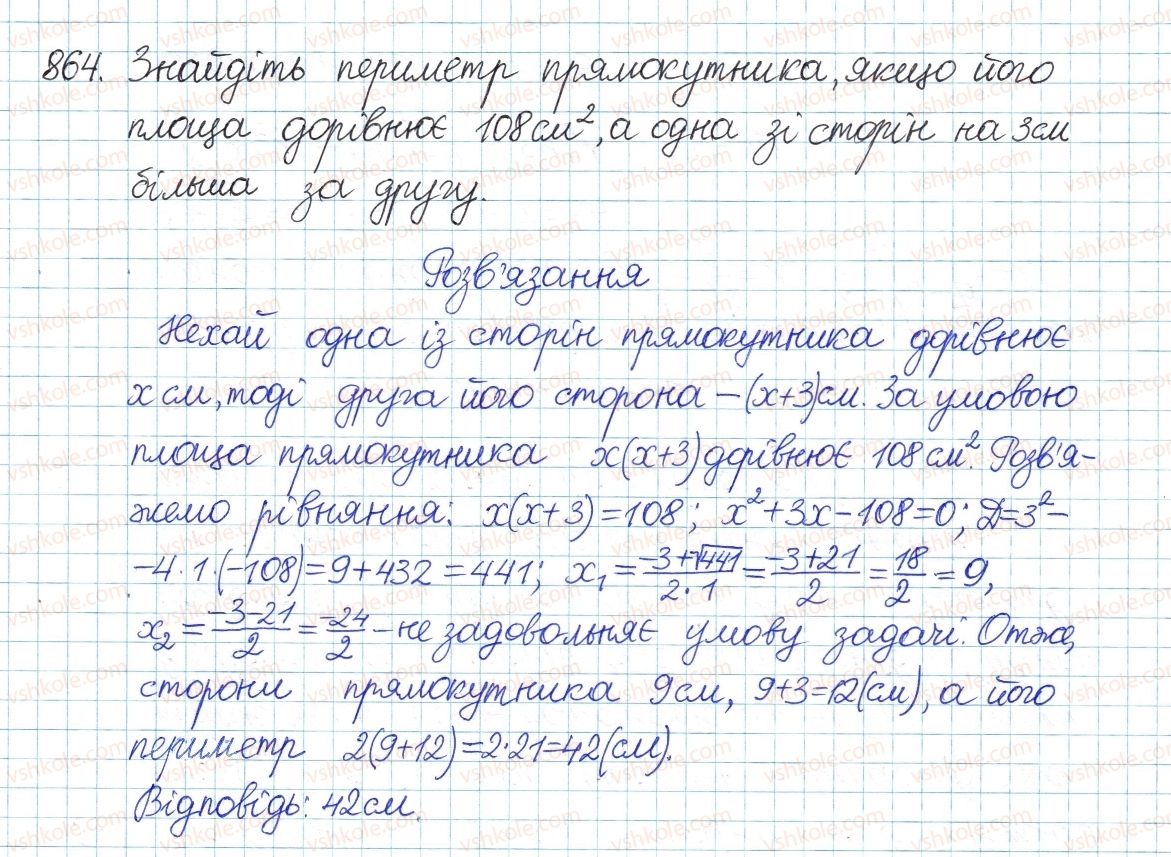 864. Знайдіть периметр прямокутника, якщо його
площа дорівнює 108 см², а одна зі сторін на 3 см
більша за другу.
Розв'язання
Нехай одна із сторін прямокутника дорівнює
x см, тоді друга його сторона – (x+3) см. За умовою
площа прямокутника x(x+3) дорівнює 108 см². Розв'я-
жемо рівняння: x(x+3)=108; x²+3x-108=0; Д=3²-
-4·1·(-108)=9+432=441; x₁=(-3+√441)/(2·1)=(-3+21)/2=18/2=9,
x₂=(-3-21)/2=-24/2 – не задовольняє умову задачі. Отже,
сторони прямокутника 9 см, 9+3=12(см), а його
периметр 2(9+12)=2·21=42(см).
Відповідь: 42 см.